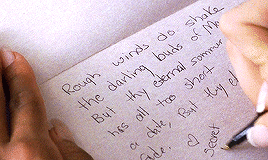 Rough winds do shake
the darling buds of Ma
But thy eternal summer
has all too short
a date, But thy e
fade. a
secret